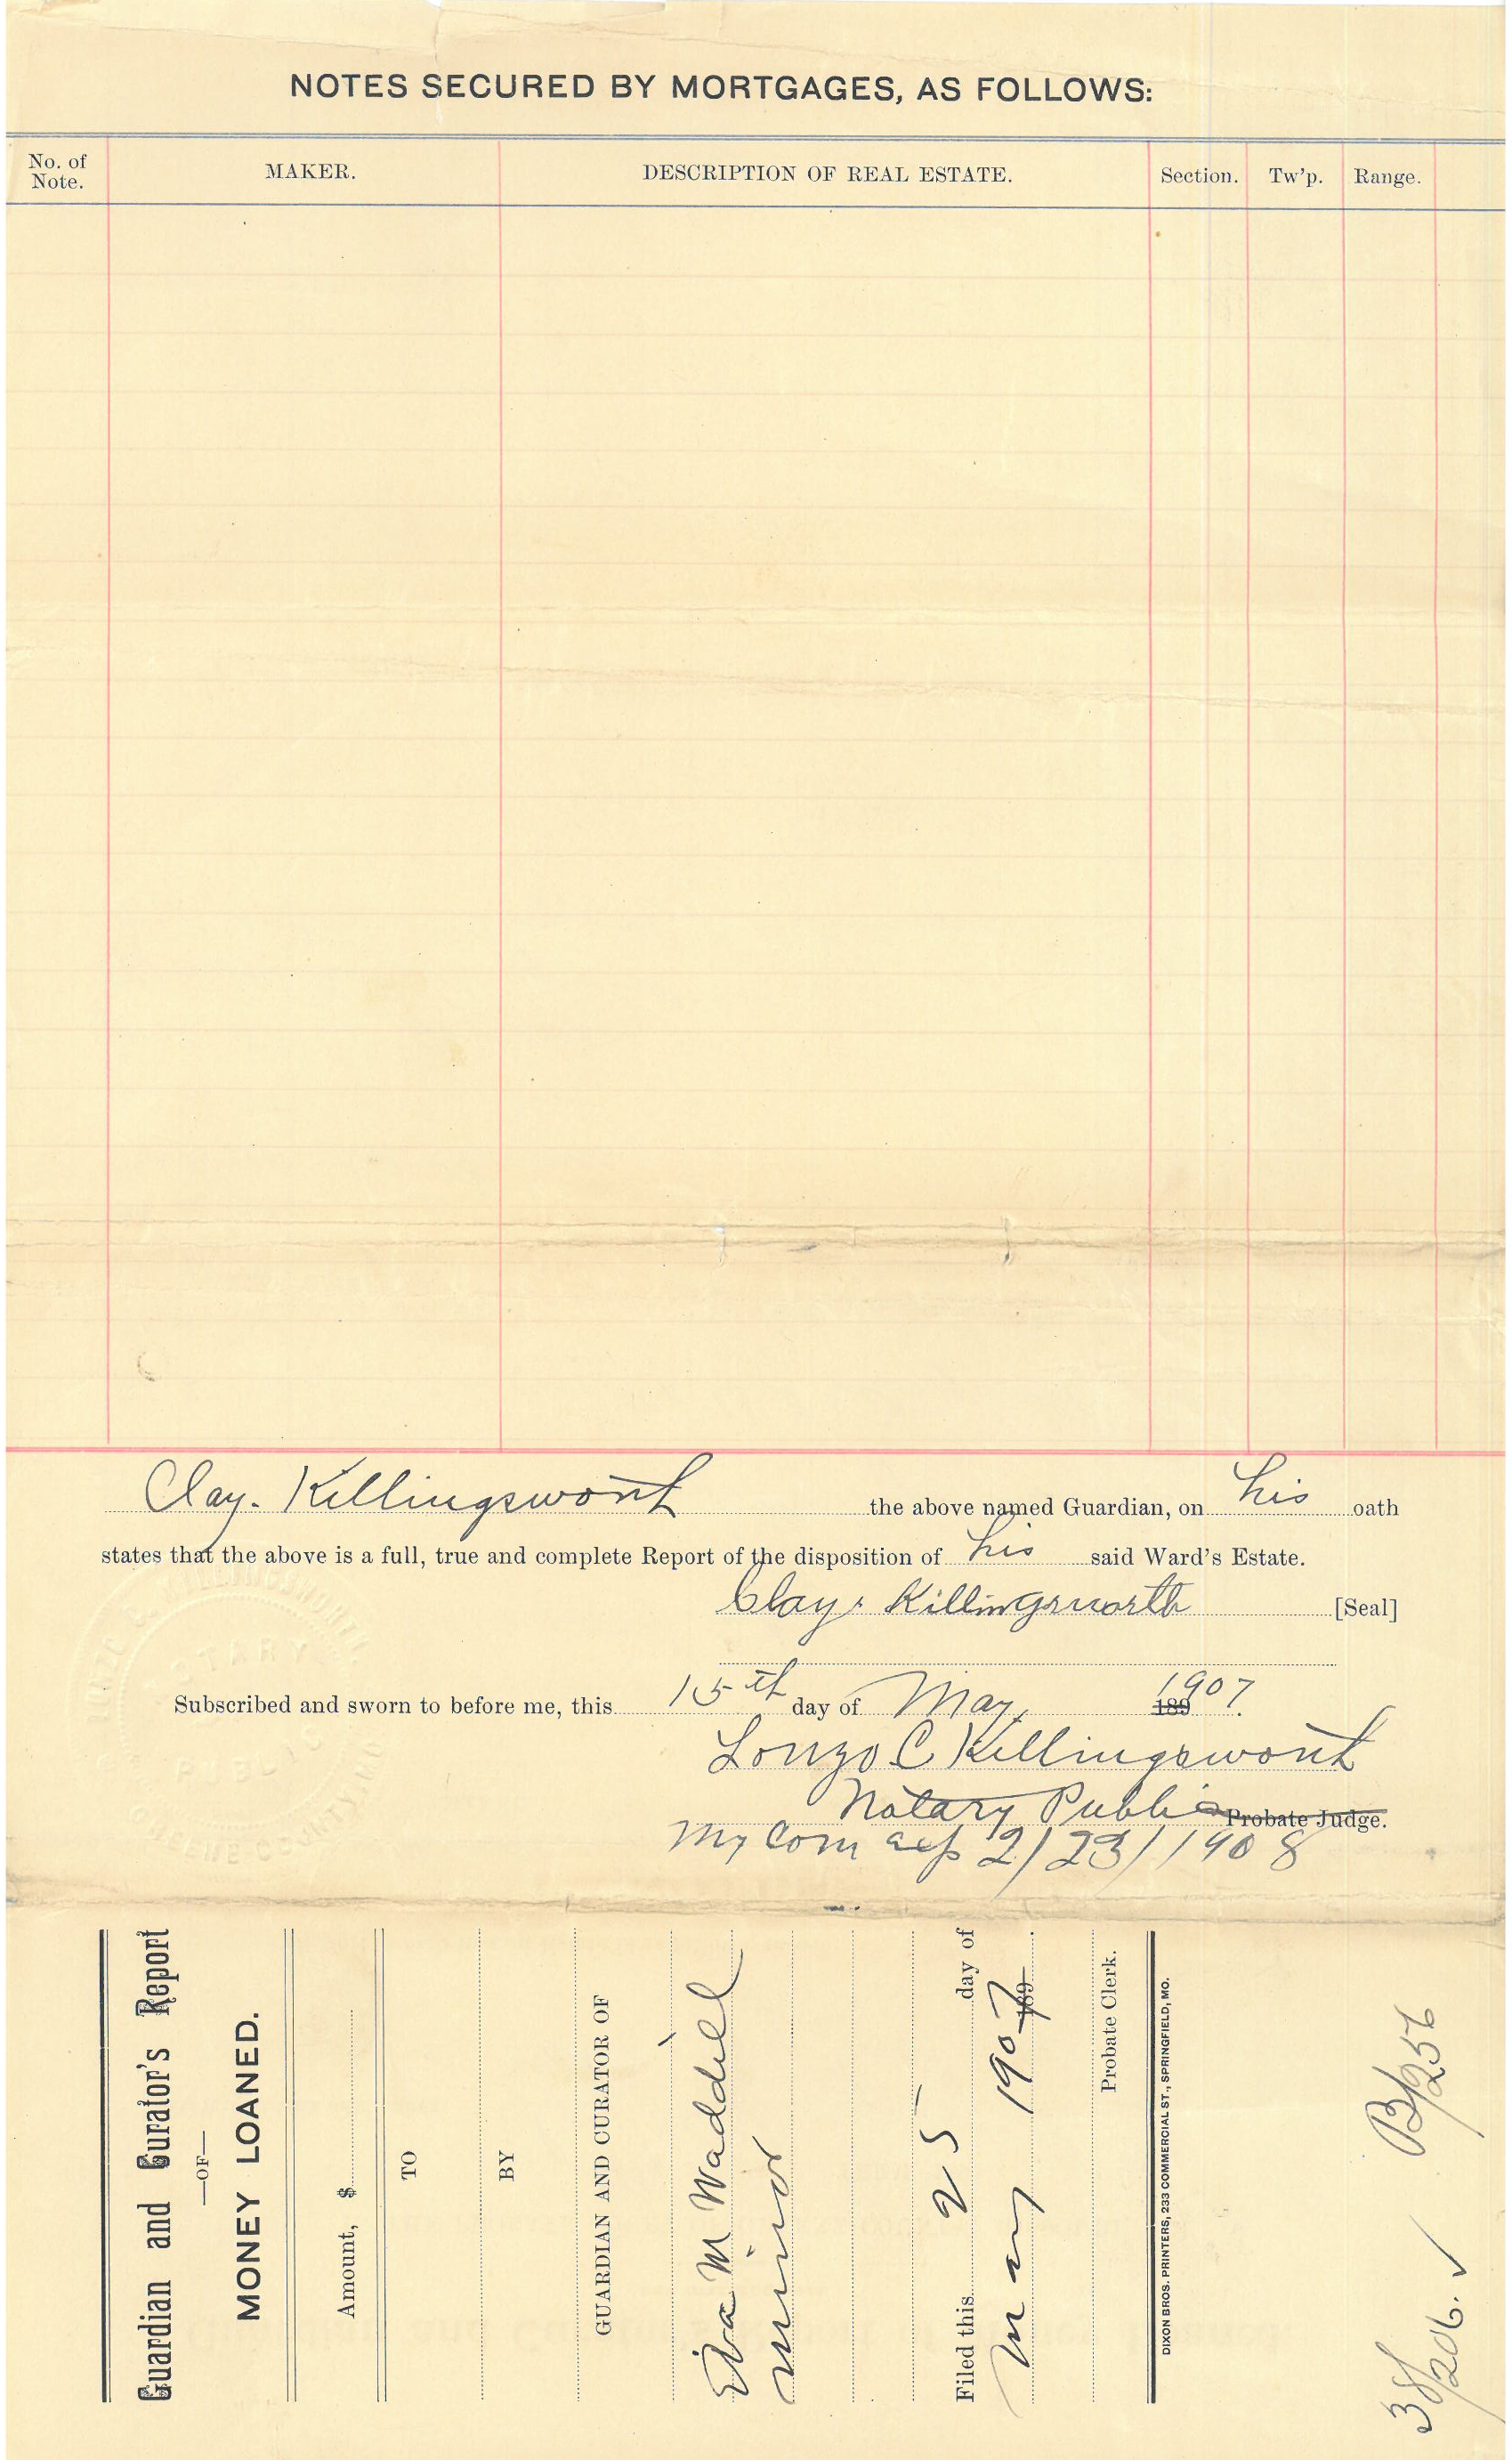 NOTES SECURED BY MORTGAGES, AS FOLLOWS:
No. of Note. MAKER. DESCRIPTION OF REAL ESTATE. Section. Tw'p. Range.
Clay. Killingsworth the above named Guardian, on his oath
states that the above is a full, true and complete Report of the disposition of his said Ward's Estate.
Clay. Killingsworth [Seal]
Subscribed and sworn to before me, this 15th day of May, 189 1907.
Lonzo C Killingsworth
Notary Public Probate Judge.
My Com exp 2/23/1908
NOTARY
PUBLIC
GREENE COUNTY
Guardian and Curator's Report
—OF—
MONEY LOANED.
Amount, $
TO
BY
GUARDIAN AND CURATOR OF
Eva M Waddill
minor
Filed this 25 day of
May 1907 189
Probate Clerk.
DIXON BROS. PRINTERS, 233 COMMERCIAL ST., SPRINGFIELD, MO.
38/206. B/256